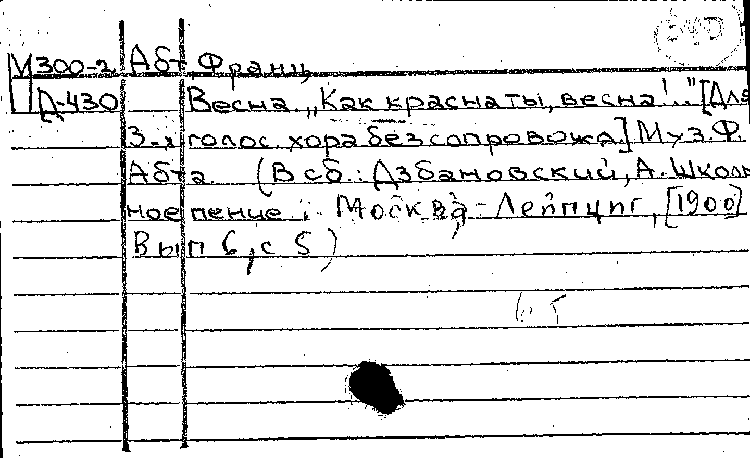 М300-2 Абт Франц
Д-430 Весна. „Как красна ты, весна!.." [Для
3-х голос. хора без сопровожд.] Муз. Ф.
Абта. (В сб.: Дзбановский, А. Школь
ное пение. Москва-Лейпциг, [1900]
Вып 6, с 5)